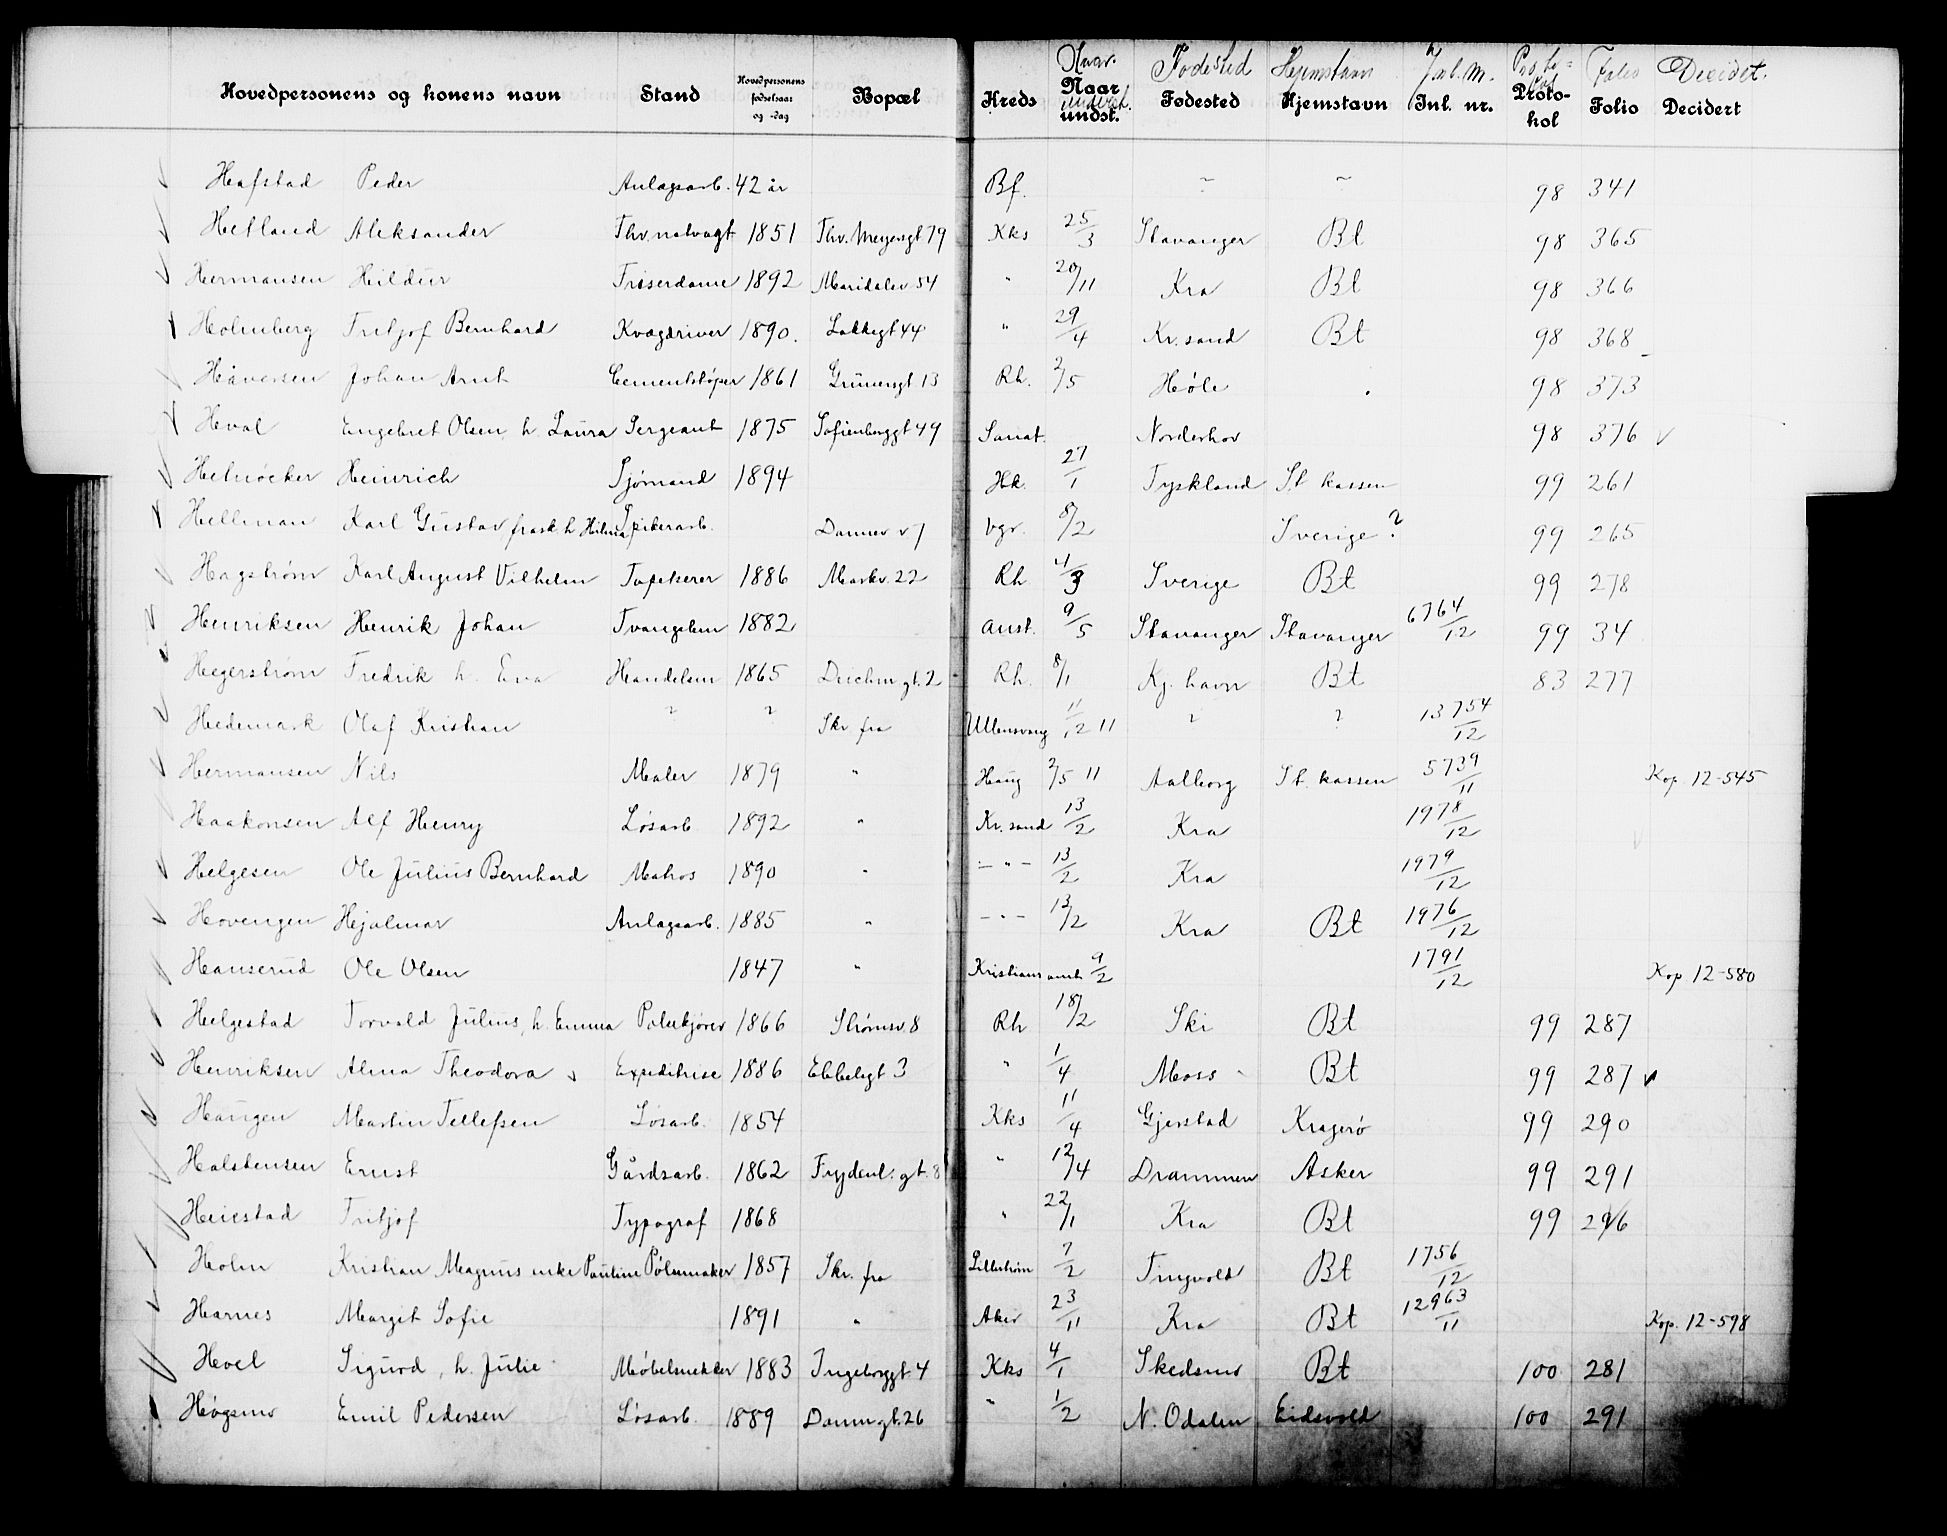 Naar. Fødested Hjemstavn Jnl. nr. Proto- Folio Decidet.
Hovedpersonens og konens navn Stand Hovedpersonens fødselsaar og -dag Bopæl Kreds Naar undst. Fødested Hjemstavn Jnl. nr. Proto-kol Folio Decidert
Hafstad Peder Anlagsarb. 42 år Bf. ~ ~ 98 341
Hetland Aleksander Thv.natvagt 1851 Thv. Meyersgt 79 Kks 25/3 Stavanger Bt 98 365
Hermansen Hildur Friserdame 1892 Maridalsv 54 " 20/11 Kra Bt 98 366
Holmberg Fritjof Bernhard Kvægdriver 1890. Lakkegt 44 " 29/4 Kr. sand Bt 98 368
Håversen Johan Arnt Cementstøper 1861 Grünersgt. 13 Rh. 2/5 Høle . 98 373
Hval Engebret Olsen, h. Laura Sergeant 1875 Sofienberggt 49 Sanat. Norderhov 98 376 v
Heinrich Sjømand 1894 Hk. 27/1 Tyskland St. kassen 99 261
Hellman Karl Gustav frask. h. Hilma Spikerarb. Dannev 7 Vgr. 8/2 Sverige ? 99 265
Hagstrøm Karl August Vilhelm Tapetserer 1886 Markv. 22 Rh. 4/3 Sverige Bt 99 278
Henriksen Henrik Johan Tvangslem 1882 Anst. 9/5 Stavanger Stavanger 6764/12 99 34
Hegerstrøm Fredrik h. Eva Handelsm 1865 Deichm gt. 2 Rh. 8/1 Kj. havn Bt 83 277
Hedemark Olaf Kristian ? ? Skr fra Ullensvang 11/12 11 ? ? 13754/12
Hermansen Nils Maler 1879 " Haug 2/5 11 Aalborg St. kassen 5739/11 Kop. 12-545
Haakonsen Alf Henry Løsarb 1892 " Kr. sand 13/2 Kra 1978/12
Helgesen Ole Julius Bernhard Matros 1890 " - " - 13/2 Kra 1979/12
Hovengen Hjalmar Anlagsarb. 1885 " - " - 13/2 Kra Bt 1976/12
Hanserud Ole Olsen 1847 " Kristians amt 9/2 1791/12 Kop 12-580
Helgestad Torvald Julius, h. Emma Pølsekjører 1866 Strømsv. 8 Rh 18/2 Ski Bt 99 287
Henriksen Alma Theodora Expeditrise 1886 Ebbelsgt 3 " 1/4 Moss - Bt 99 287 v
Haugen Martin Tellefsen Løsarb. 1854 Kks 11/4 Gjerstad Kragerø 99 290
Halstensen Ernst Gårdsarb. 1862 Frydenl. gt. 8 " 12/4 Drammen Asker 99 291
Heiestad Fritjof Typograf 1868 " 22/1 Kra Bt 99 296
Holm Kristian Magnus enke Pauline Pølsemaker 1857 Skr. fra Lillestrøm 7/2 Tingvold Bt 1756/12
Harnes Margit Sofie 1891 " Aker 23/11 Kra Bt 12963/11 Kop. 12-598
Hovel Sigurd, h. Julie Møbelsnekker 1883 Ingeborggt. 4 Kks 4/1 Skedsmo Bt 100 281
Høgsmo Emil Pedersen Løsarb. 1889 Dannegt. 26 " 1/2 N. Odalen Eidsvold 100 291